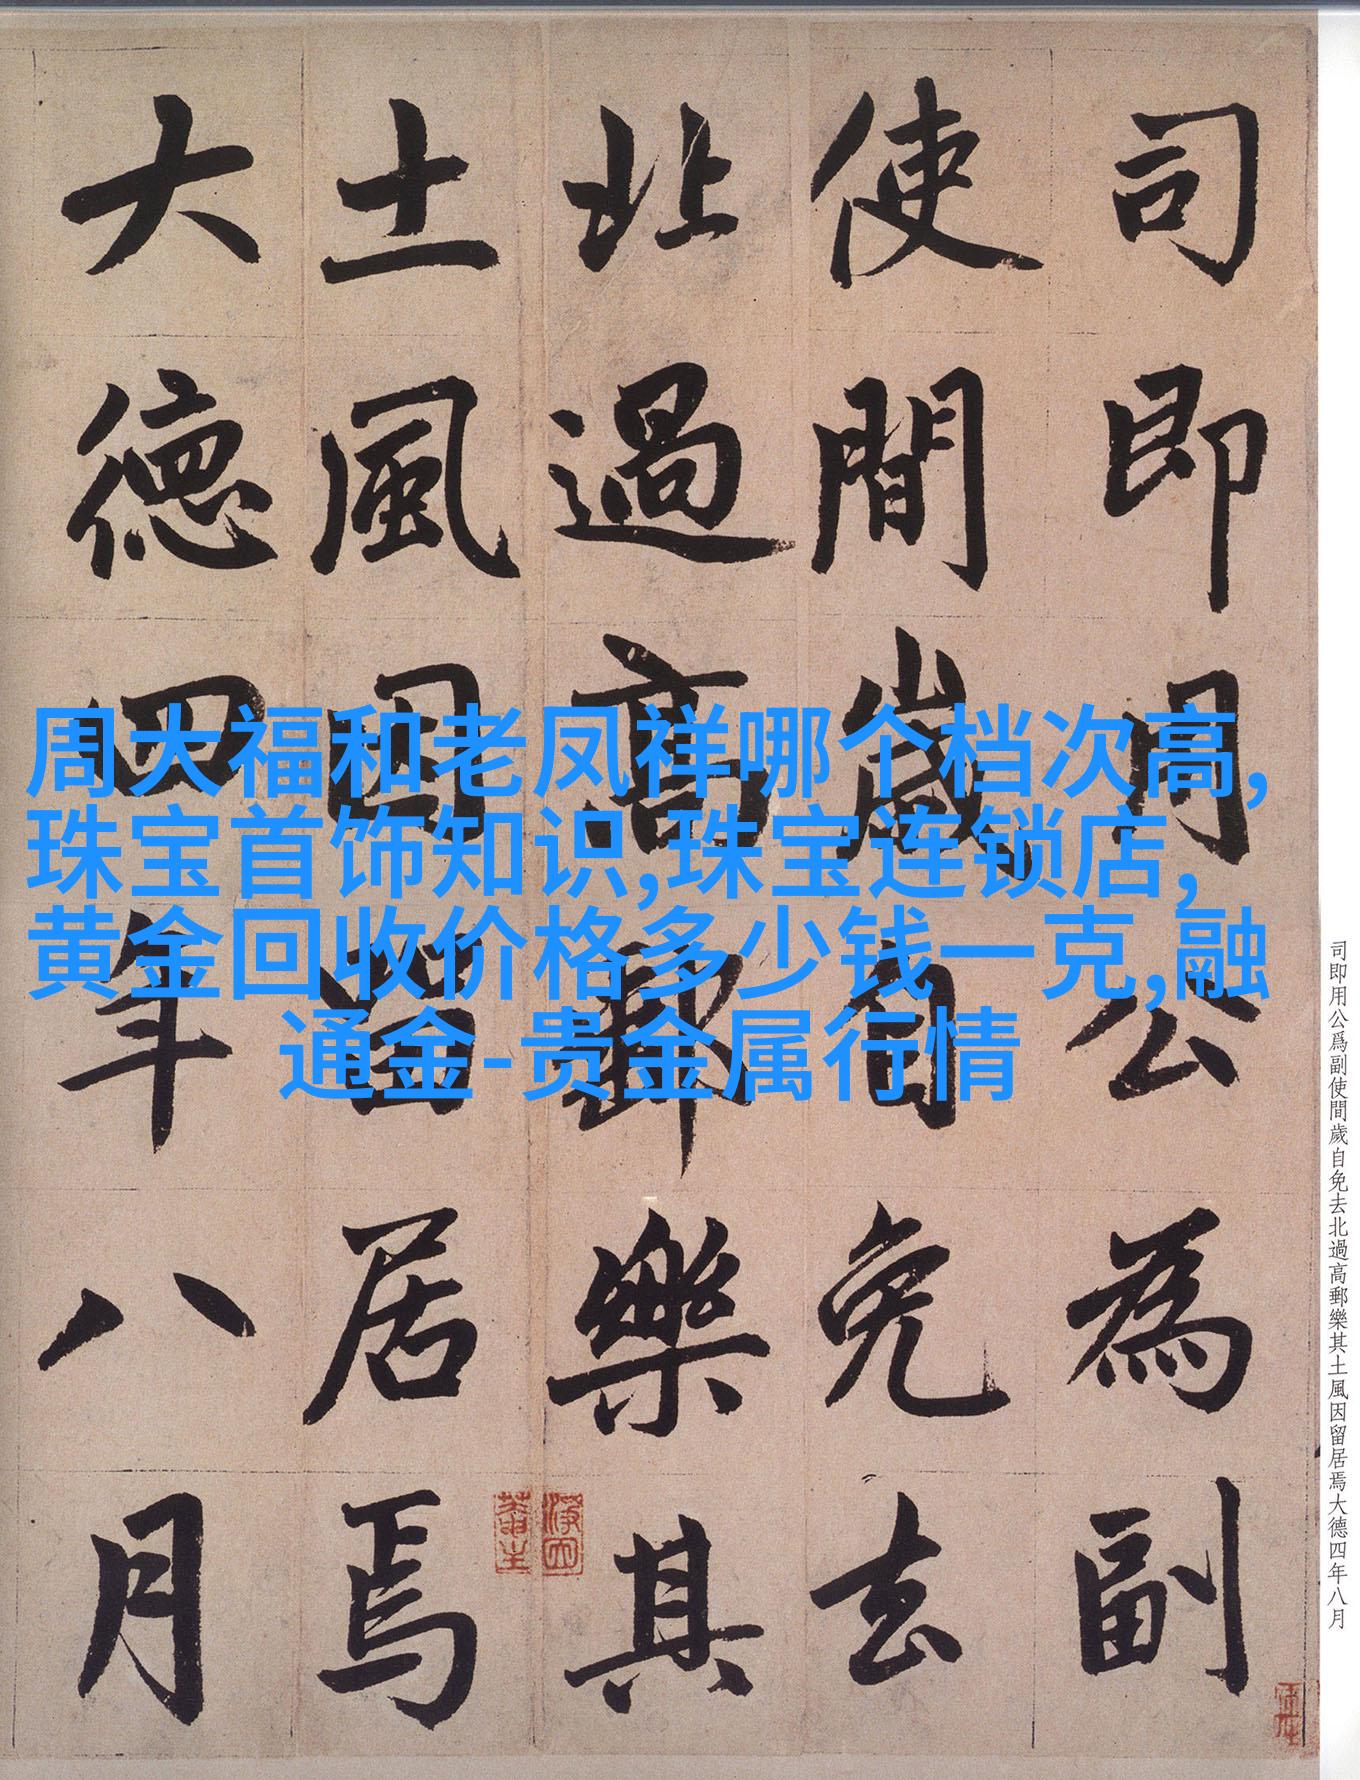 司即用公為副
使間歲自免去
北過高郵樂其
土風因留居焉
大德四年八月
周大福和老凤祥哪个档次高,
珠宝首饰知识,珠宝连锁店,
黄金回收价格多少钱一克,融
通金-贵金属行情
司即用公爲副使間歲自免去北過高郵樂其土風因留居焉大德四年八月